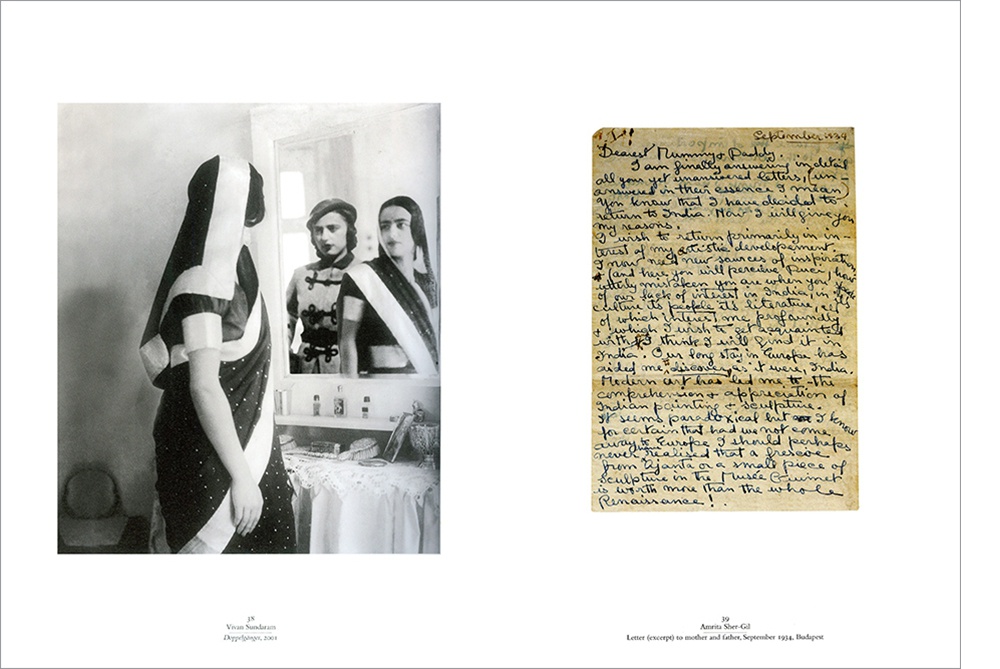 September 1934
Dearest Mummy & Daddy.
I am finally answering in detail
all your yet unanswered letters, (un-
answered in their essence I mean)
You know that I have decided to
return to India. Now I will give you
my reasons.
I wish to return primarily in in-
terest of my artistic developement
I now need new sources of inspiration,
(and here you will perceive Duci, how
utterly mistaken you are when you
of our lack of interest in India, in its
culture its people its literature, all
of which interest me profoundly
& which I wish to get acquainted
with) I think I will find it in
India. Our long stay in Europe has
aided me to discover, as it were, India.
Modern art has led me to the
comprehension & appreciation of
Indian painting & sculpture.
It seems paradoxical but I know
for certain that had we not come
away to Europe I should perhaps
never have realised that a fresco
from Ajanta or a small piece of
sculpture in the Musée Guimet
is worth more than the whole
Renaissance!
38
Vivan Sundaram
Doppelgänger, 2001
39
Amrita Sher-Gil
Letter (excerpt) to mother and father, September 1934, Budapest